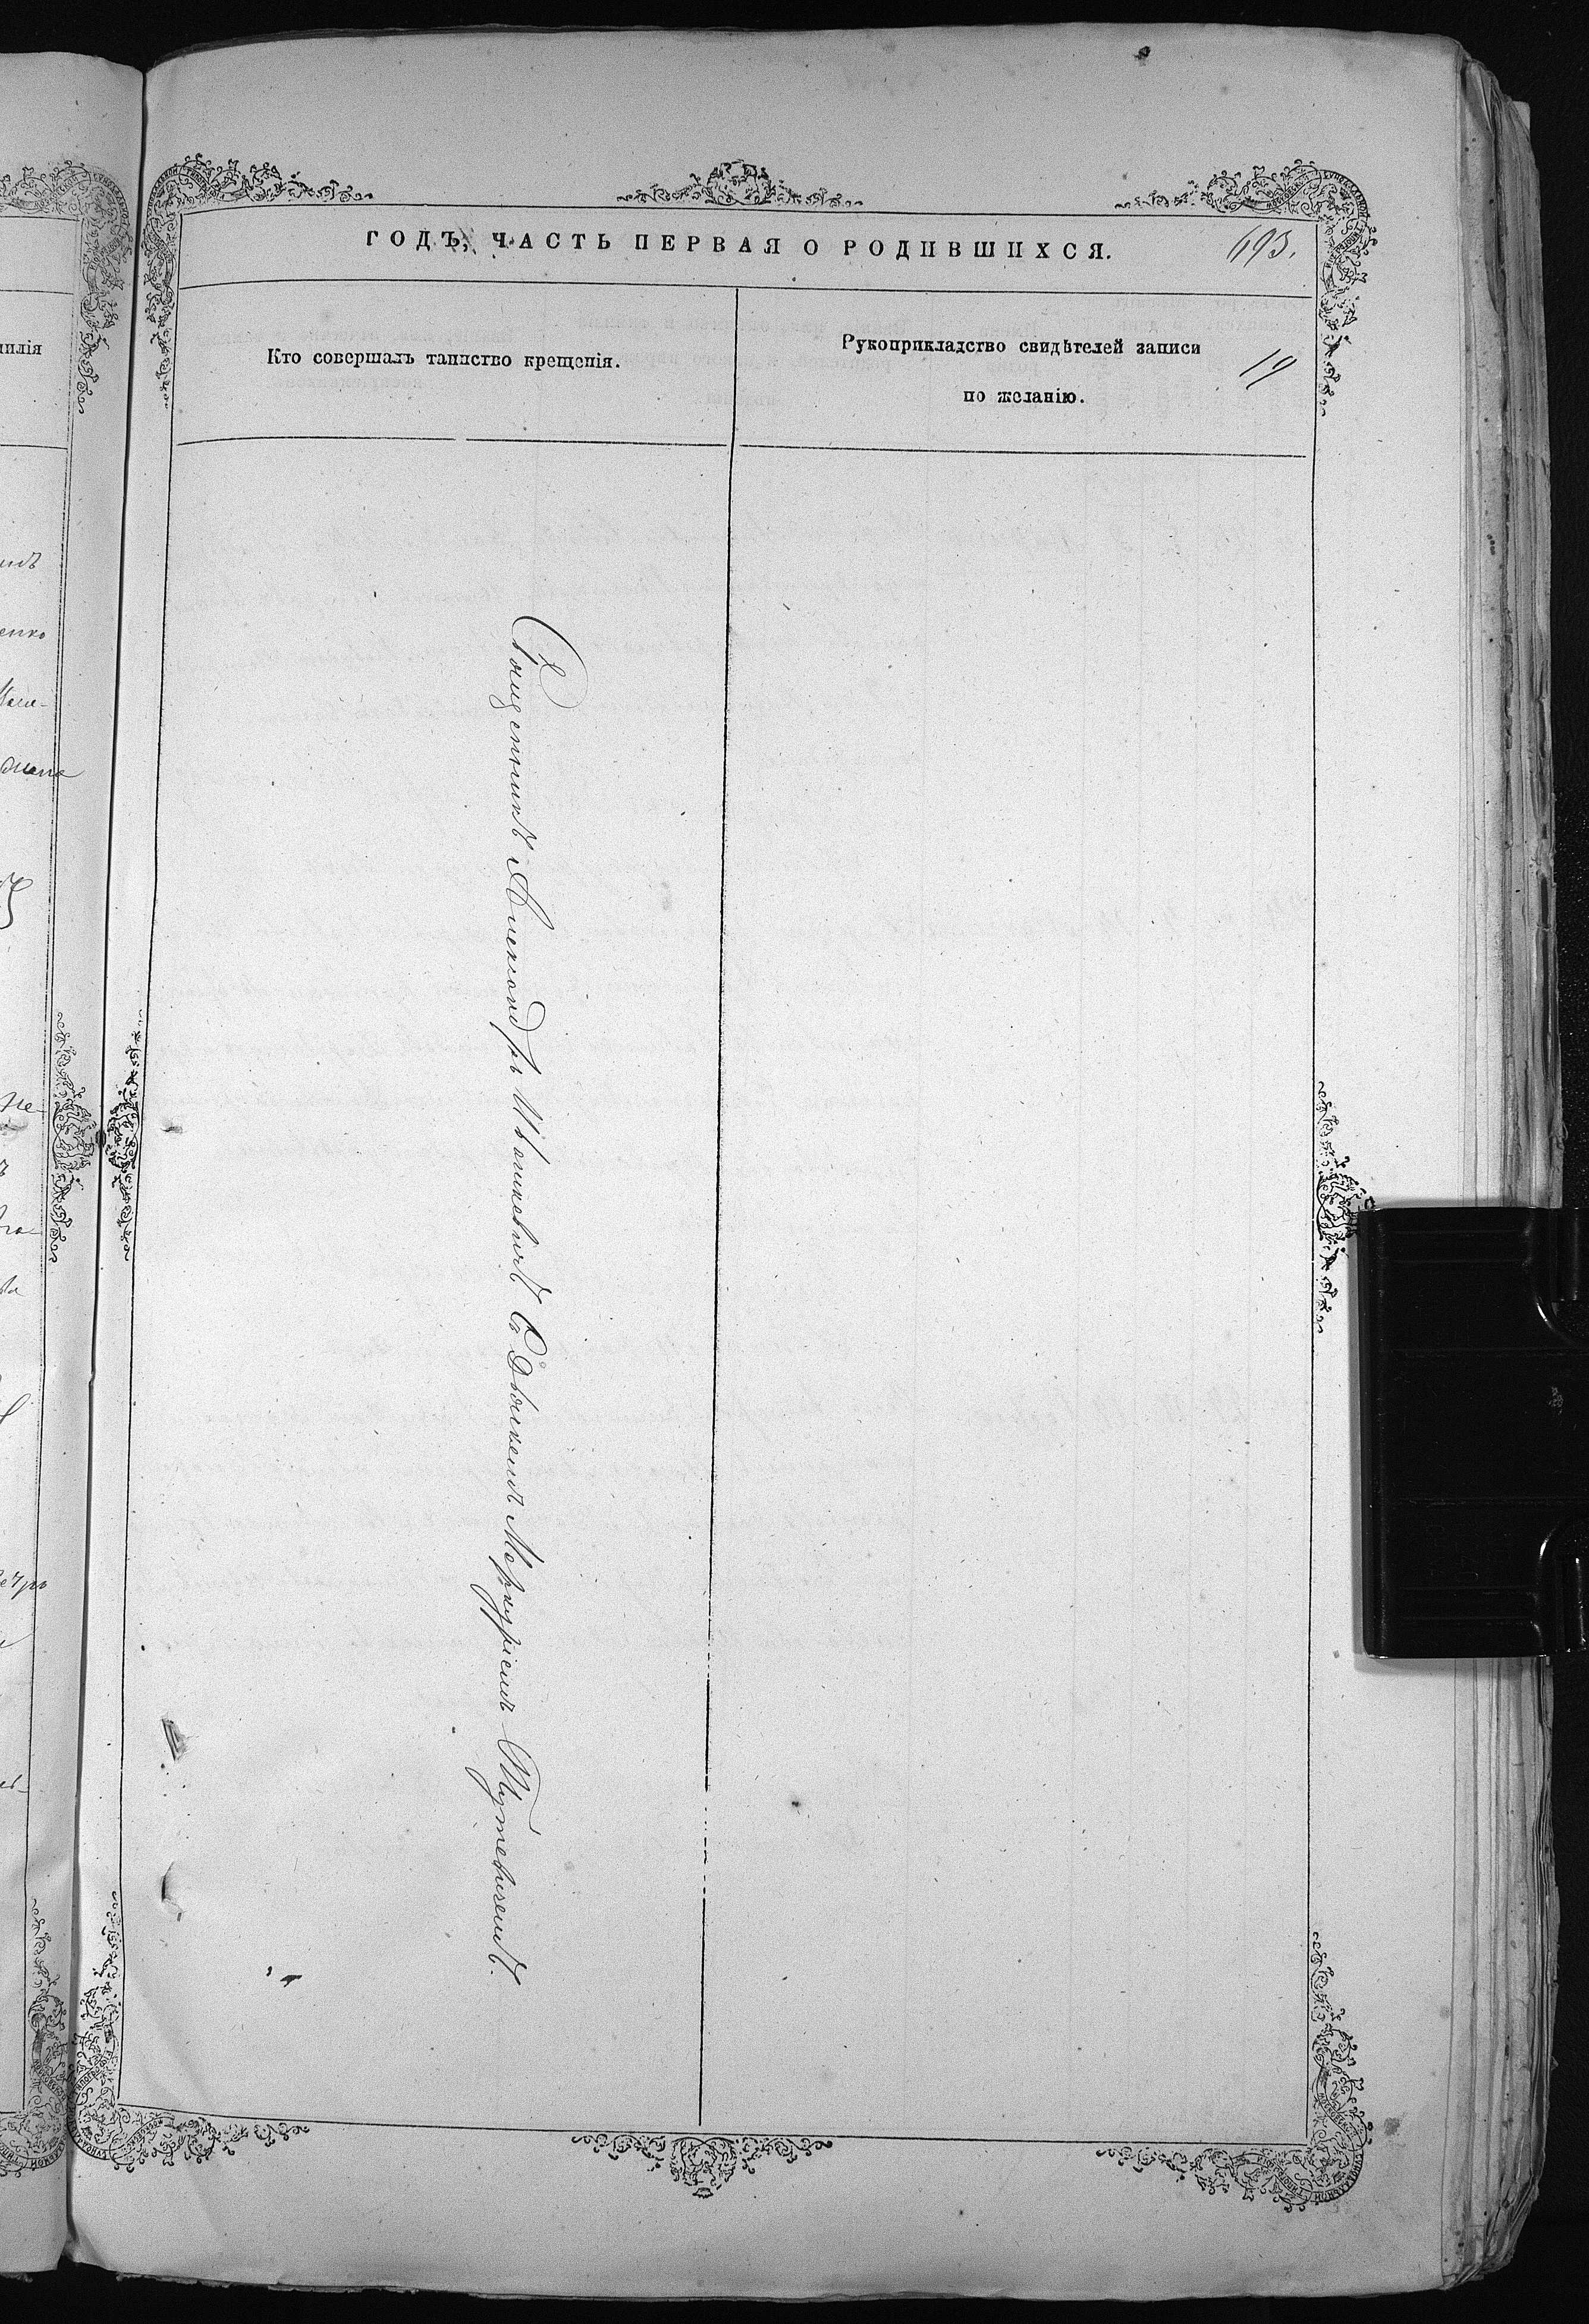 ГОДЪ, ЧАСТЬ ПЕРВАЯ О РОДИВШИХСЯ.
693.
Кто совершалъ таинство крещенія.
Рукоприкладство свидѣтелей записи
по желанію.
19
Священникъ Александръ Ивашкевичъ Съ Дьячкомъ Меркуріемъ Тутевичемъ.
илія
енко